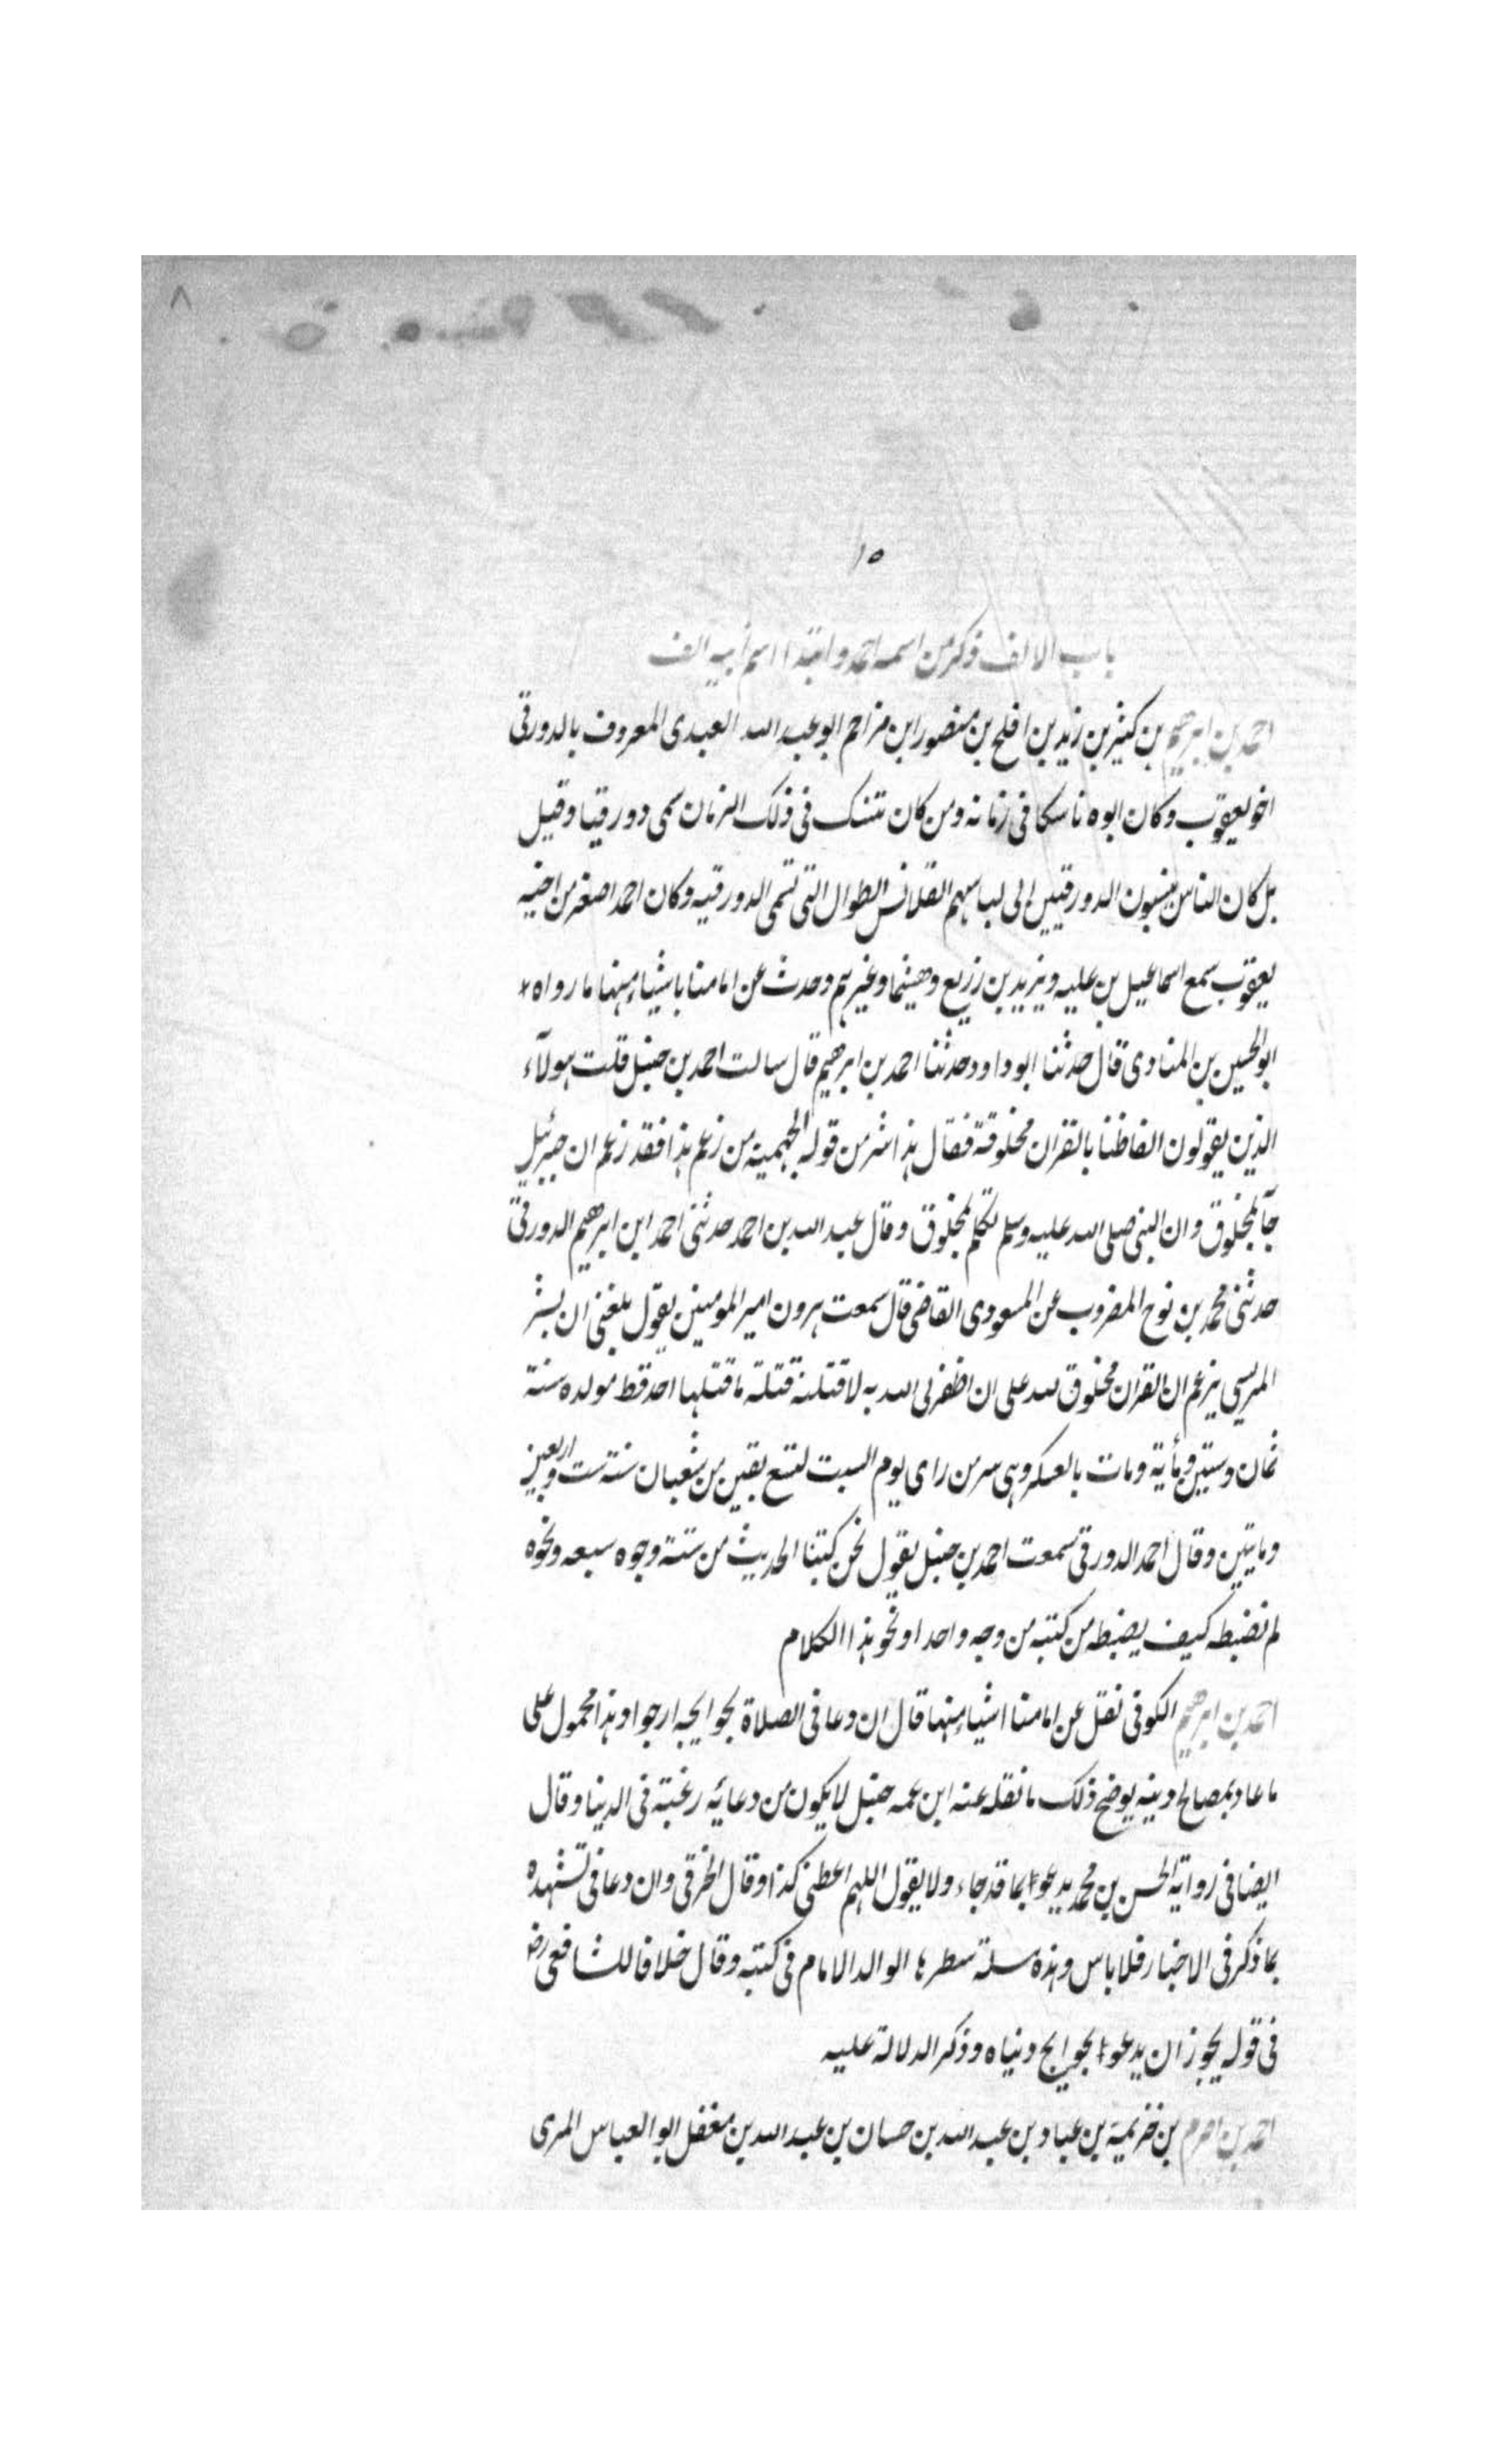 ٨
١٥
باب الالف ذكر من اسمه احمد وابتدا اسم ابيه الف
احمد بن ابرهيم بن كثير بن زيد بن افلح بن منصور ابن مزاحم ابو عبد الله العبدى المعروف بالدورقى
اخو يعقوب وكان ابوه ناسكا فى زمانه ومن كان تنسك فى ذلك الزمان سمى دورقيا وقيل
بل كان الناس ينسبون الدورقيين الى لباسهم القلانس الطوال التى تسمى الدورقيه وكان احمد اصغر من اخيه
يعقوب سمع اسماعيل بن عليه ويزيد بن زريع وهشيما وغيرهم وحدث عن امامنا باشياء منها ما رواه
ابو الحسين بن المنادى قال حدثنا ابو داود وحدثنا احمد بن ابرهيم قال سالت احمد بن حنبل قلت هولآء
الذين يقولون الفاظنا بالقران مخلوقة فقال هذا شر من قوله الجهمية من زعم هذا فقد زعم ان جبرئيل
جآ بمخلوق وان النبى صلى الله عليه وسلم تكلم بمخلوق وقال عبد الله بن احمد حدثنى احمد ابن ابرهيم الدورقى
حدثنى محمد بن نوح المضروب عن المسعودى القاضى قال سمعت هرون امير المومنين يقول بلغنى ان بشر
المريسى يزعم ان القران مخلوق لله على ان اظفرنى الله به لاقتلنه قتلة ما قتلها احد قط مولده سنة
ثمان وستين ومأية ومات بالعسكر وهى سر من راى يوم السبت لتسع بقين من شعبان سنة ست واربعين
ومايتين وقال احمد الدورقى سمعت احمد بن حنبل يقول نحن كتبنا الحديث من ستة وجوه سبعه ونحوه
لم نضبطه كيف يضبطه من كتبه من وجه واحد او نحو هذا الكلام
احمد بن ابرهيم الكوفى نقل عن امامنا اشياء منها قال ان دعا فى الصلاة بحوايجه ارجوا وهذا محمول على
ما عاد بمصالح دينه يوضح ذلك ما نقله عنه ابن عمه حنبل لا يكون من دعايه رغبة فى الدنيا وقال
ايضا فى رواية الحسن بن محمد يدعوا بما قد جاء ولا يقول اللهم اعطنى كذا وقال الخرقى وان دعا فى تشهده
بما ذكر فى الاخبار فلا باس وهذه مسلة سطرها الوالد الامام فى كتبه وقال خلافا للشافعى رض
فى قوله يجوز ان يدعوا بحوايج دنياه وذكر الدلالة عليه
احمد بن اصرم بن خزيمة بن عباد بن عبد الله بن حسان بن عبد الله بن مغفل ابو العباس المزى